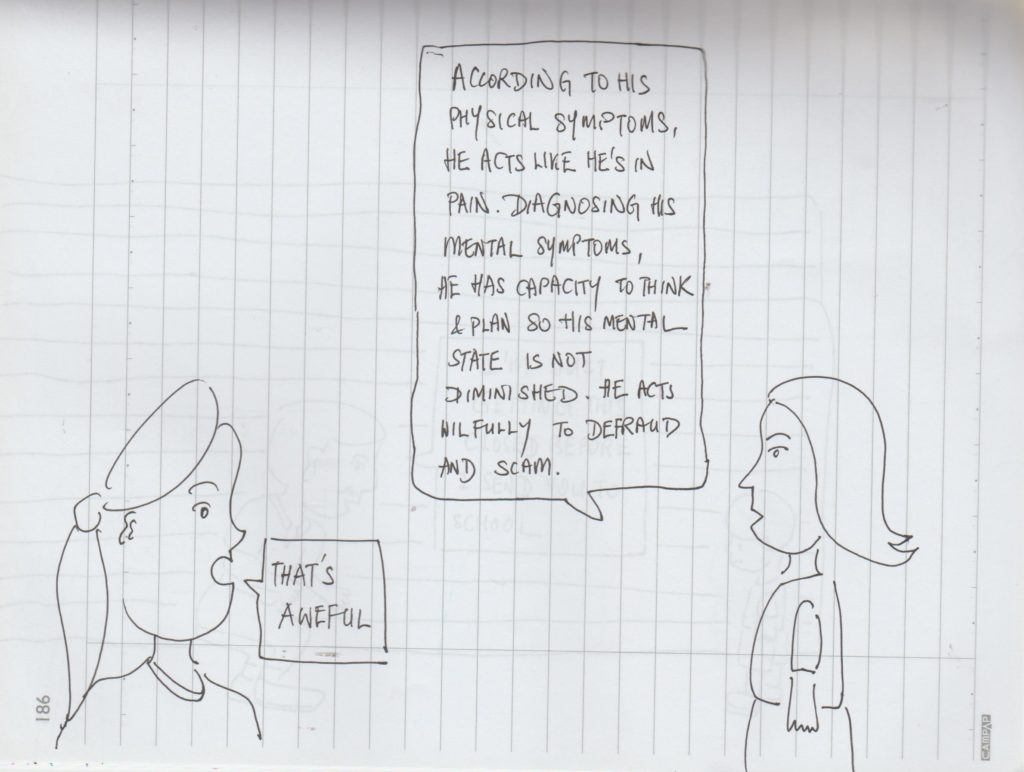 ACCORDING TO HIS
PHYSICAL SYMPTOMS,
HE ACTS LIKE HE'S IN
PAIN. DIAGNOSING HIS
MENTAL SYMPTOMS,
HE HAS CAPACITY TO THINK
& PLAN SO HIS MENTAL
STATE IS NOT
DIMINISHED. HE ACTS
WILFULLY TO DEFRAUD
AND SCAM.
THAT'S
AWEFUL
186
CAMPAP